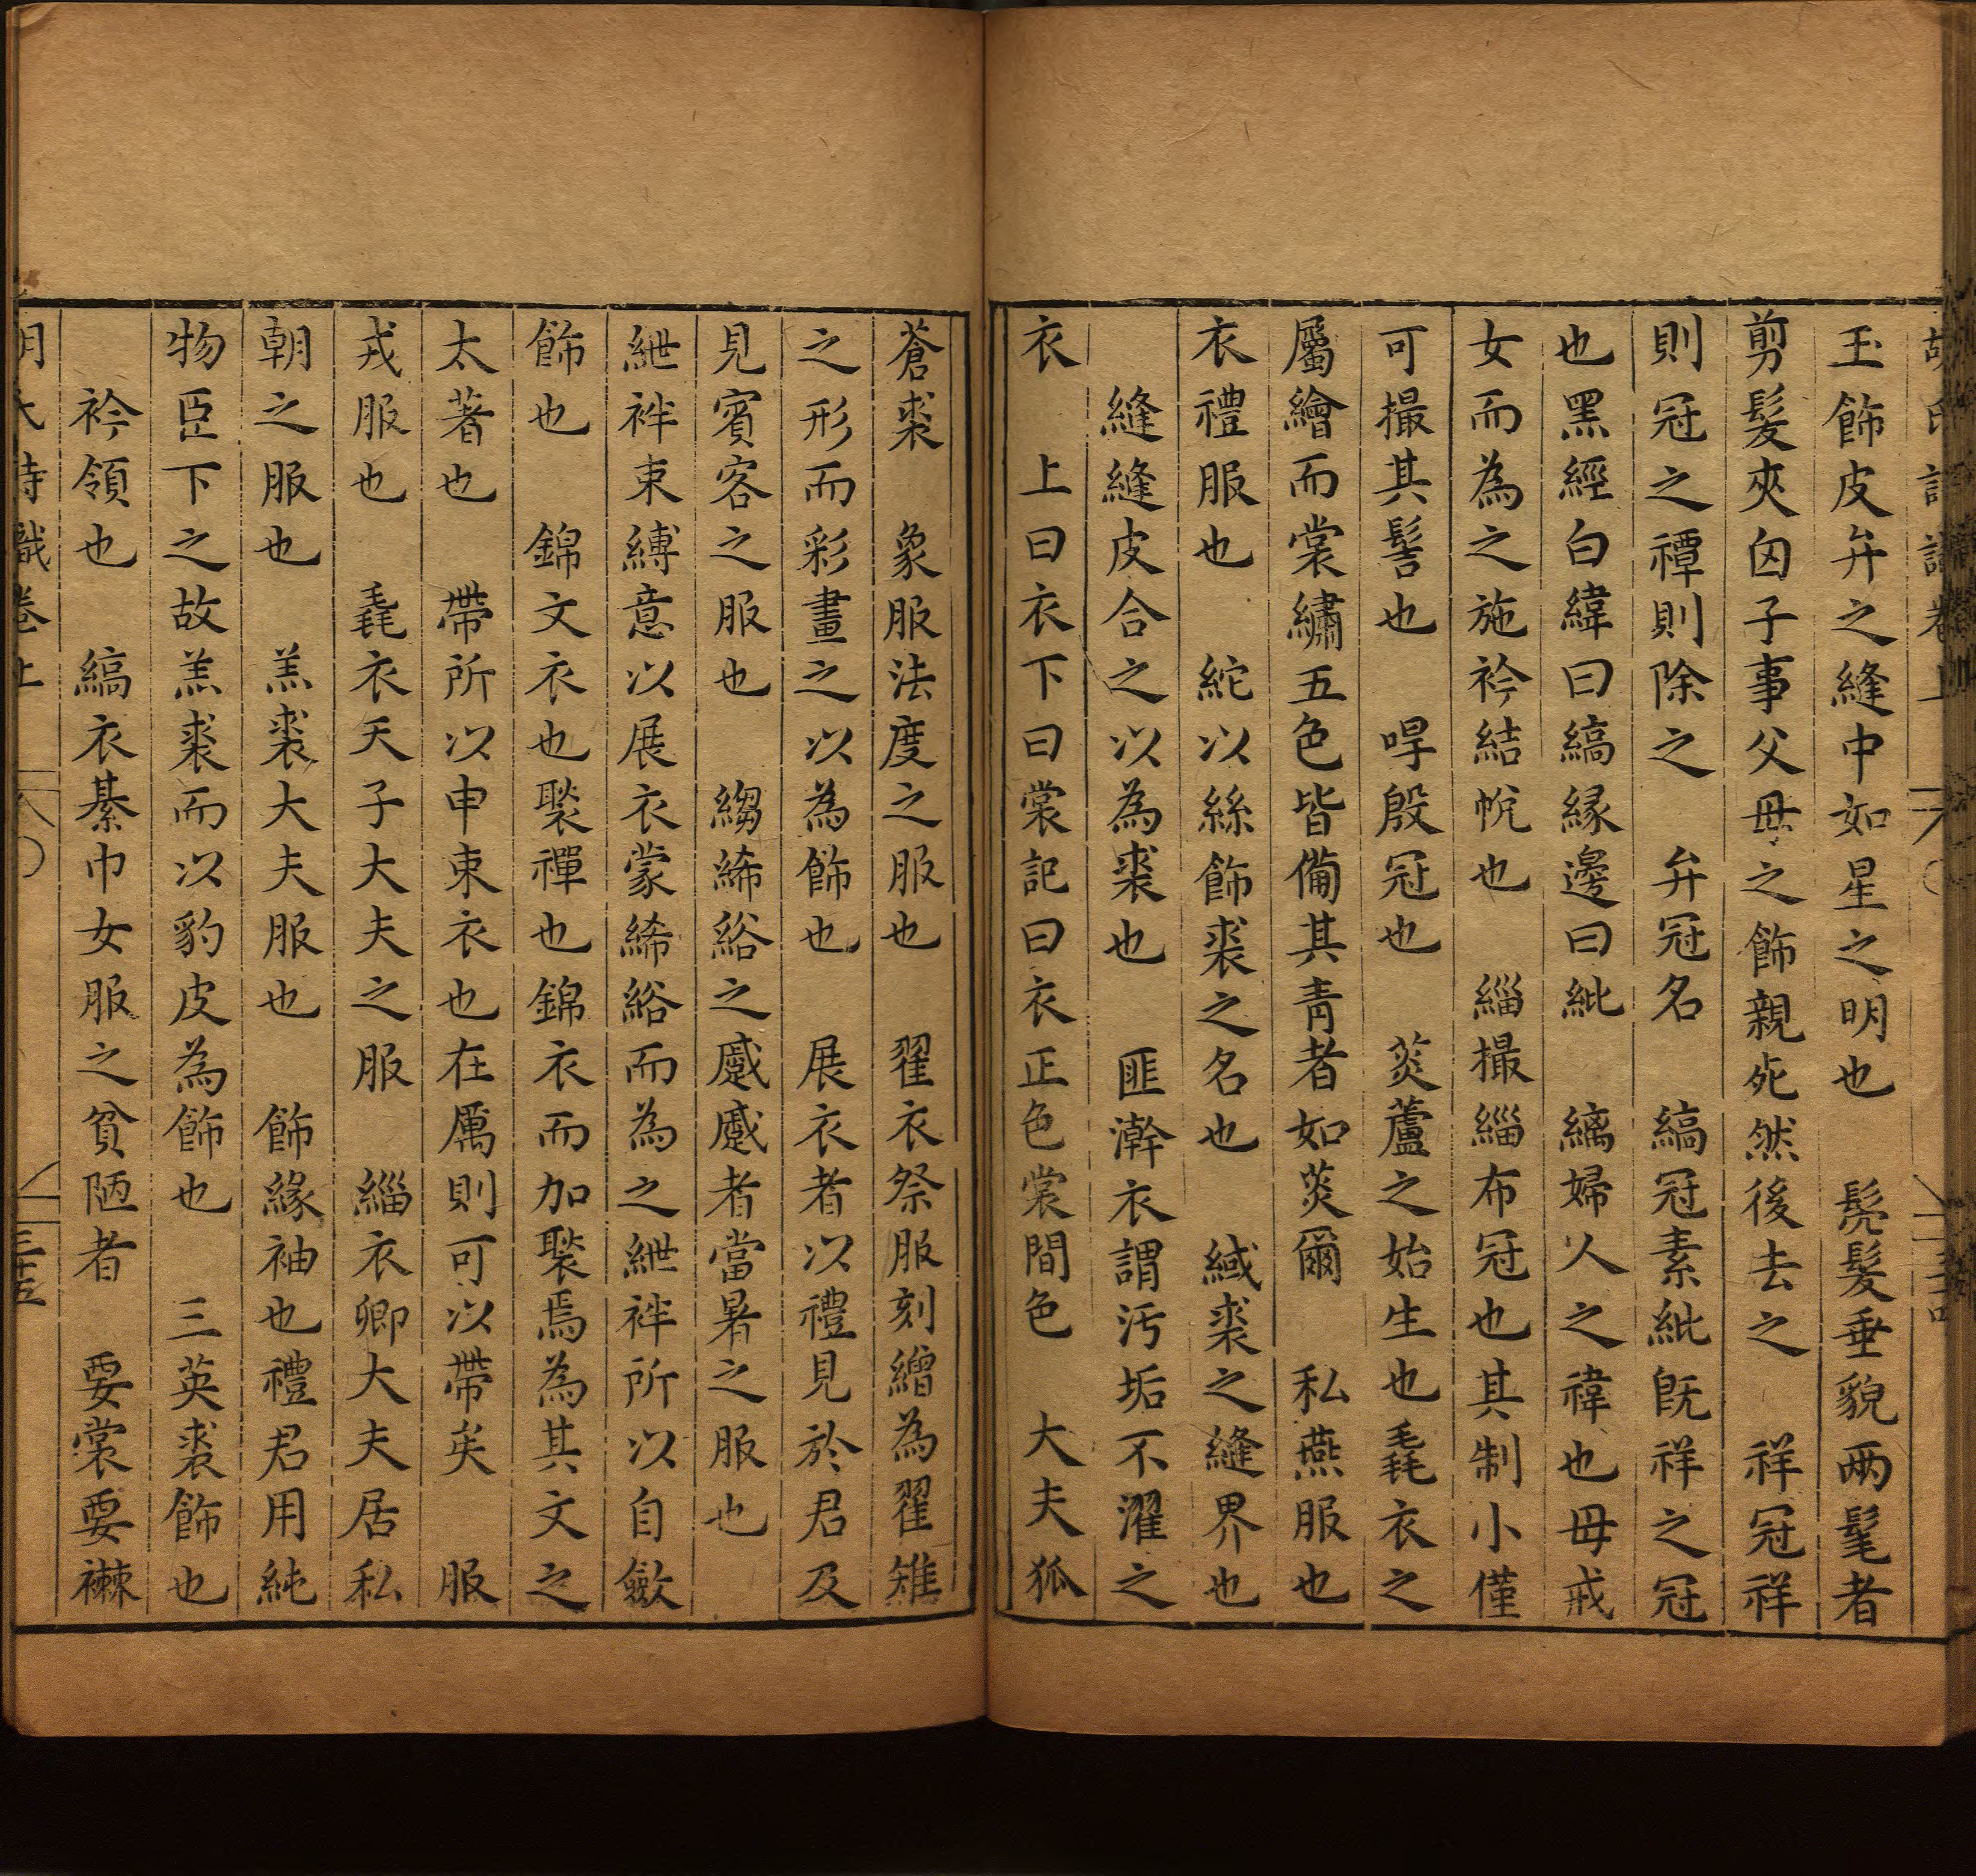 玉飾皮弁之縫中如星之明也　髧髮垂貌兩髦者
剪髮夾囟子事父母之飾親死然後去之　祥冠祥
則冠之禫則除之　弁冠名　縞冠素紕既祥之冠
也黑經白緯曰縞緣邊曰紕　縭婦人之褘也母戒
女而為之施衿結帨也　緇撮緇布冠也其制小僅
可撮其髻也　哻殷冠也　菼蘆之始生也毳衣之
屬繪而裳繡五色皆備其青者如菼爾　私燕服也
衣禮服也　紽以絲飾裘之名也　緎裘之縫界也
縫縫皮合之以為裘也　匪澣衣謂污垢不濯之
衣　上曰衣下曰裳記曰衣正色裳間色　大夫狐
蒼裘　象服法度之服也　翟衣祭服刻繒為翟雉
之形而彩畫之以為飾也　展衣者以禮見於君及
見賓客之服也　縐絺綌之蹙蹙者當暑之服也
紲袢束縛意以展衣蒙絺綌而為之紲袢所以自斂
飾也　錦文衣也褧襌也錦衣而加褧焉為其文之
太著也　帶所以申束衣也在厲則可以帶矣　服
戎服也　毳衣天子大夫之服　緇衣卿大夫居私
朝之服也　羔裘大夫服也　飾緣袖也禮君用純
物臣下之故羔裘而以豹皮為飾也　三英裘飾也
衿領也　縞衣綦巾女服之貧陋者　要裳要襋
詩識卷上　三十五